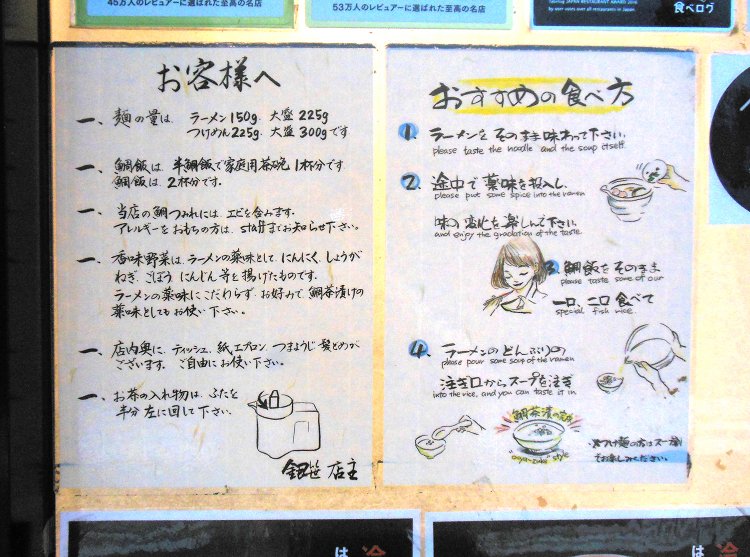 45万人のレビュアーに選ばれた至高の名店
53万人のレビュアーに選ばれた至高の名店
Tabelog JAPAN RESTAURANT AWARD 2016
by user votes over all restaurants in Japan
食べログ
お客様へ
一、麺の量は、ラーメン150g. 大盛225g
つけめん225g. 大盛300gです
一、鯛飯は、半鯛飯で家庭用茶碗1杯分です
鯛飯は、2杯分です。
一、当店の鯛つみれには、エビを含みます。
アレルギーをおもちの方は、staffまでお知らせ下さい。
一、香味野菜は、ラーメンの薬味として、にんにく、しょうが
ねぎ、ごぼう、にんじん等を揚げたものです。
ラーメンの薬味にこだわらず、お好みで、鯛茶漬けの
薬味としてもお使い下さい。
一、店内奥に、ティッシュ、紙エプロン、つまようじ、髪どめが
ございます。ご自由にお使い下さい。
一、お茶の入れ物は、ふたを
半分左に回して下さい。
銀笹 店主
おすすめの食べ方
1. ラーメンをそのまま味わって下さい。
please taste the noodle and the soup itself.
2. 途中で薬味を投入し、
please put some spice into the ramen
味の変化を楽しんで下さい
and enjoy the gradation of the taste.
3. 鯛飯をそのまま
please taste some of our
一口、二口食べて
special fish rice.
4. ラーメンのどんぶりの
please pour some soup of the ramen
注ぎ口からスープを注ぎ
into the rice, and you can taste it in
鯛茶漬の完成
"ocya-zuke" style
※つけ麺の方はスープ割
でお楽しみください。
は
は